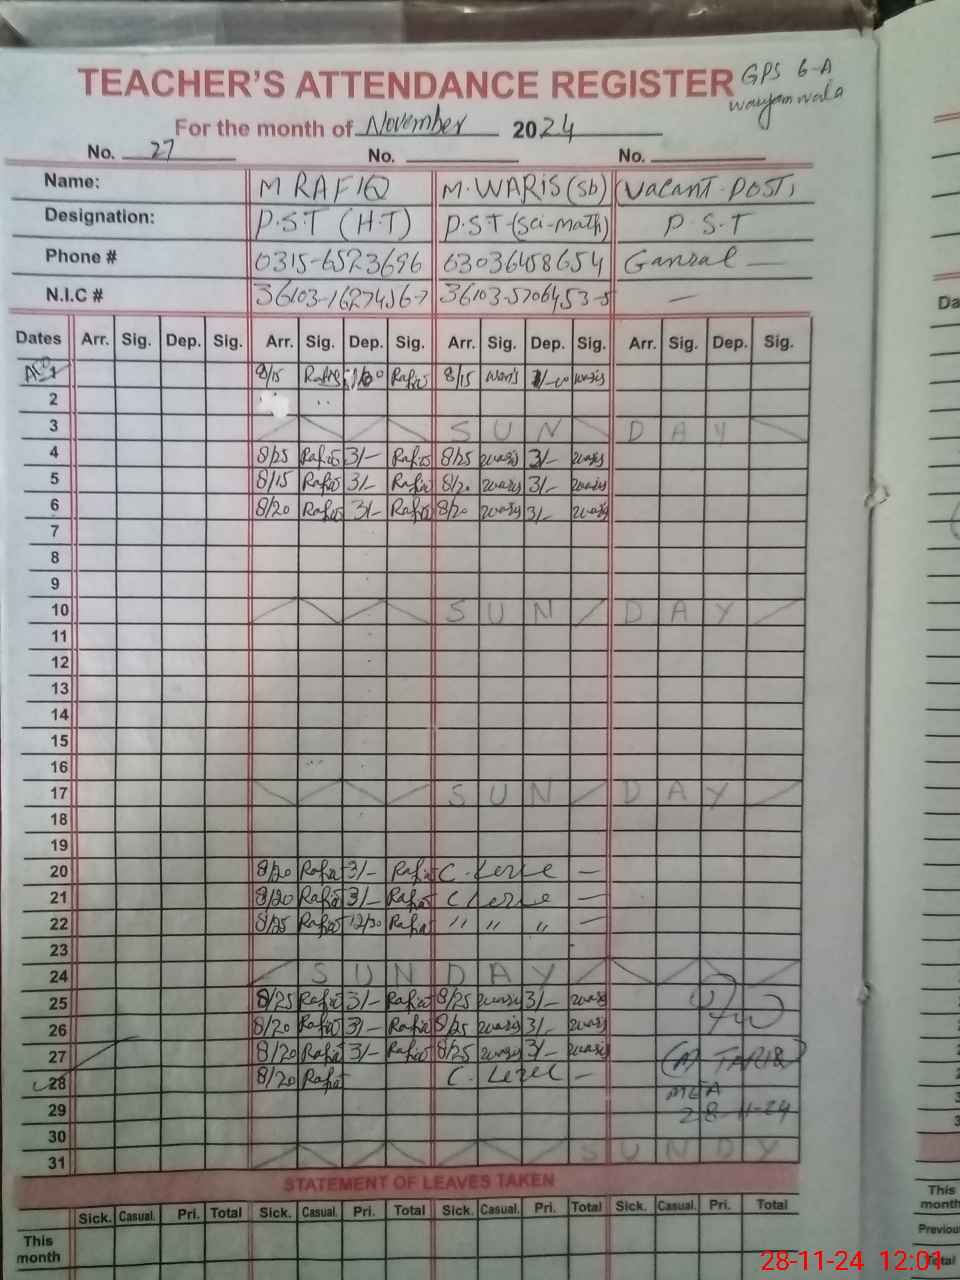 TEACHER'S ATTENDANCE REGISTER GPS 6-A
For the month of November 2024
No. 27 No. No.
Name: M RAFIQ M. WARIS (Sb) (Vacant Post)
Designation: P.S.T (H.T) P.S.T (Sci-math) P.S.T
Phone # 0315-6523696 63036458654 Ganral —
N.I.C # 36103-1627456-7 36103-5706453-5 —
Dates Arr. Sig. Dep. Sig. Arr. Sig. Dep. Sig. Arr. Sig. Dep. Sig. Arr. Sig. Dep. Sig.
1 8/15 Rafiq Rafiq 8/15 Waris Waris
2
3 S U N D A Y
4 8/25 Rafiq 3/- Rafiq 8/25 Waris 3/- Waris
5 8/15 Rafiq 3/- Rafiq 8/20 Waris 3/- Waris
6 8/20 Rafiq 3/- Rafiq 8/20 Waris 3/- Waris
7
8
9
10 S U N D A Y
11
12
13
14
15
16
17 S U N D A Y
18
19
20 8/20 Rafiq 3/- Rafiq C. Leave —
21 8/20 Rafiq 3/- Rafiq C Leave —
22 8/25 Rafiq 12/30 Rafiq " " " —
23
24 S U N D A Y
25 8/25 Rafiq 3/- Rafiq 8/25 Waris 3/- Waris
26 8/20 Rafiq 3/- Rafiq 8/25 Waris 3/- Waris
27 8/20 Rafiq 3/- Rafiq 8/25 Waris 3/- Waris (M TARIQ)
28 8/20 Rafiq C. Leave — MEA
29 28-11-24
30
31 S U N D Y
STATEMENT OF LEAVES TAKEN
Sick. Casual. Pri. Total Sick. Casual. Pri. Total Sick. Casual. Pri. Total Sick. Casual. Pri. Total
This month
Da
This month
Previou
Total
28-11-24 12:01